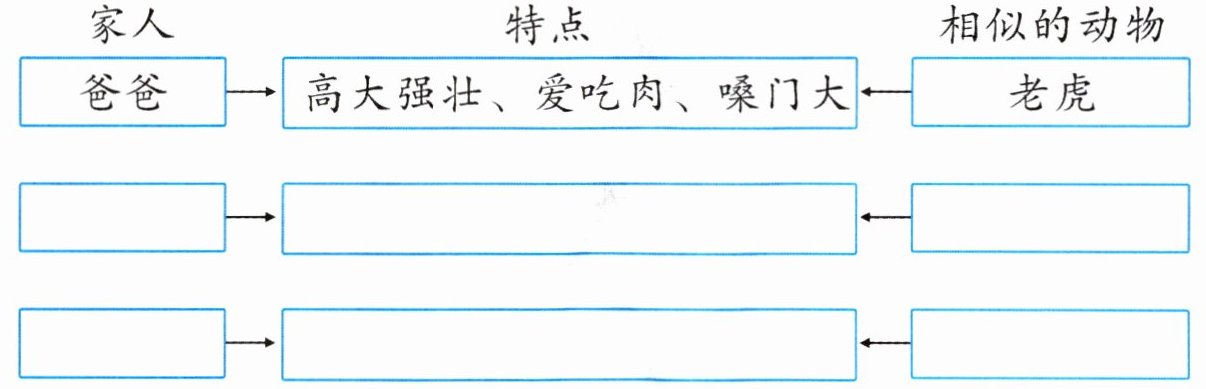 家人 特点 相似的动物
爸爸 高大强壮、爱吃肉、嗓门大 老虎